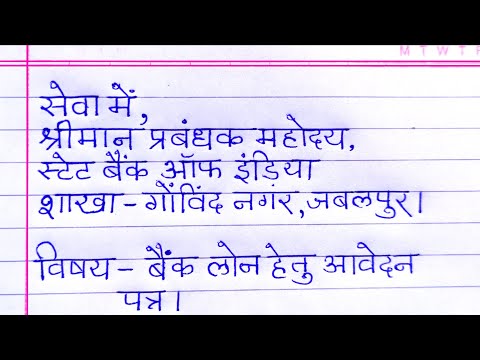 M T W T F
सेवा में,
श्रीमान प्रबंधक महोदय,
स्टेट बैंक ऑफ इंडिया
शाखा - गोंविंद नगर, जबलपुर।
विषय - बैंक लोन हेतु आवेदन
पत्र।